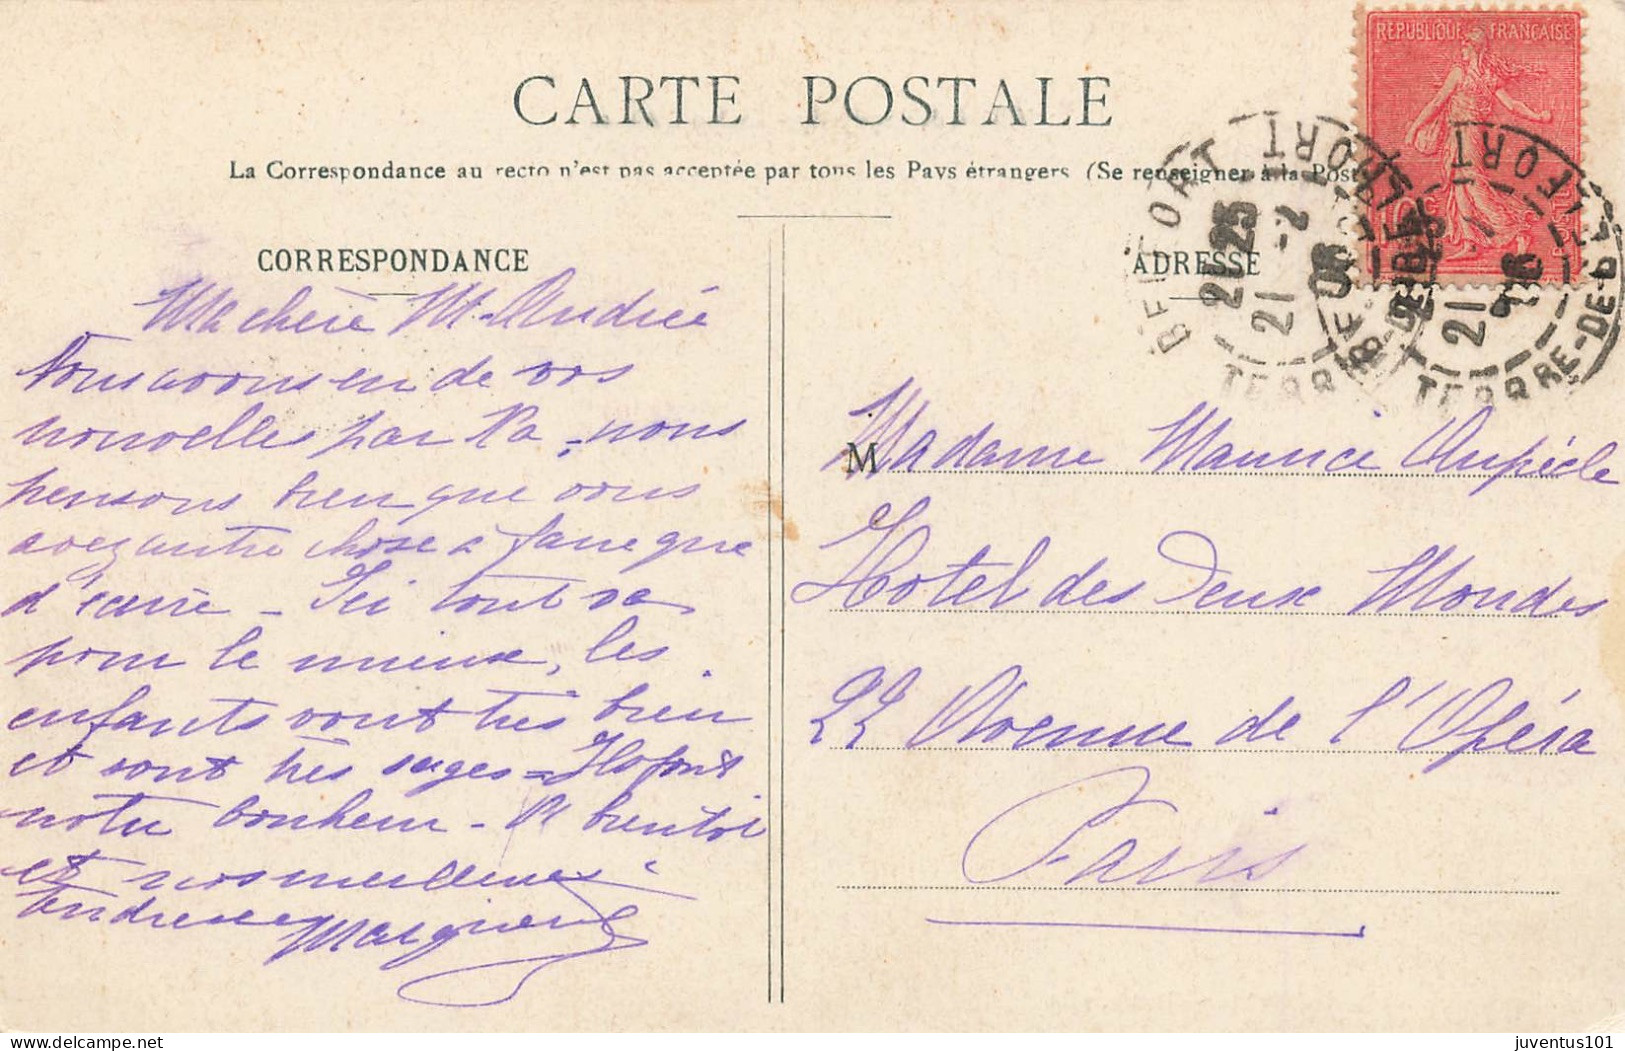 CARTE POSTALE
La Correspondance au recto n'est pas acceptée par tous les Pays étrangers (Se renseigner à la Post
REPUBLIQUE FRANÇAISE
BELFORT
21 25
21 -2
08
TERRRE-DE-B
CORRESPONDANCE
Ma chère M. Andrée
Nous avons eu de vos
nouvelles par Pa, nous
pensons bien que vous
avez autre chose à faire que
d'écrire - Ici tout va
pour le mieux, les
enfants vont très bien
et sont très sages = Ils font
notre bonheur - A bientôt
et nos meilleures
tendresses
ADRESSE
M
Madame Maurice
Hotel des Deux Mondes
22 Avenue de l'Opéra
Paris
delcampe.net
juventus101